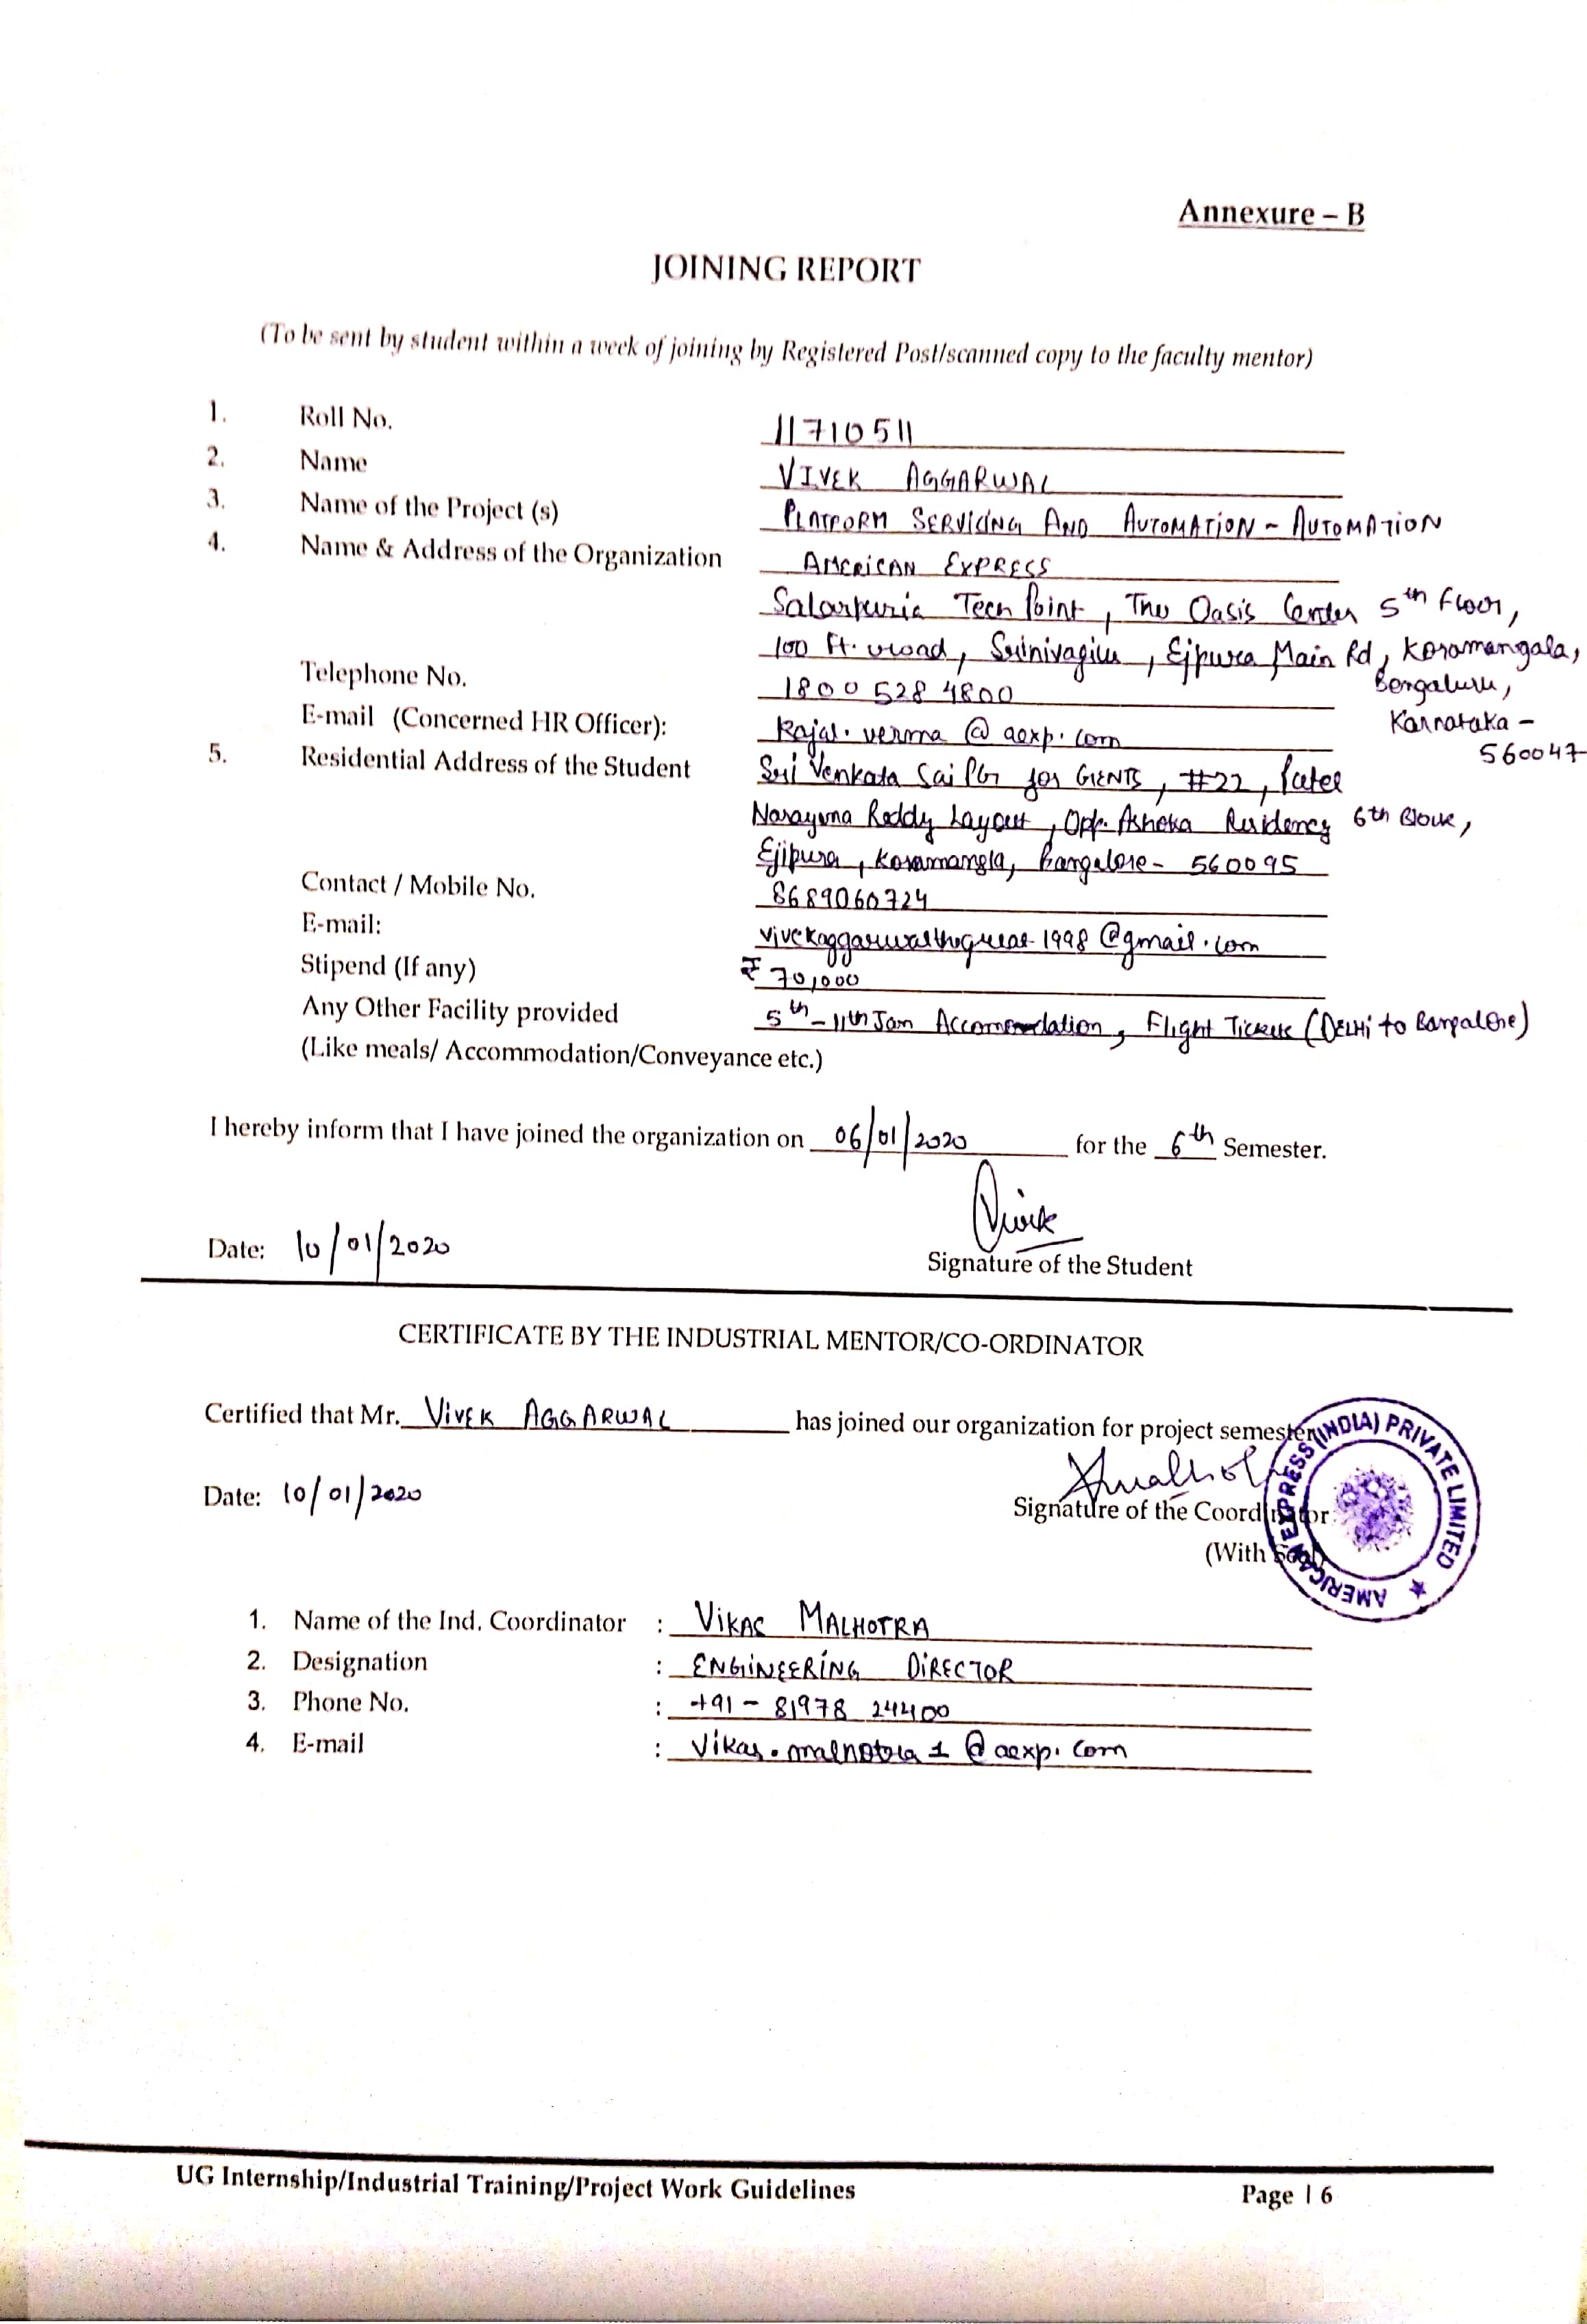 Annexure – B
JOINING REPORT
(To be sent by student within a week of joining by Registered Post/scanned copy to the faculty mentor)
1. Roll No. 11710511
2. Name VIVEK AGGARWAL
3. Name of the Project (s) PLATFORM SERVICING AND AUTOMATION - AUTOMATION
4. Name & Address of the Organization AMERICAN EXPRESS
Salarpuria Tech Point, The Oasis Center 5th Floor,
100 Ft. road, Srinivagilu, Ejipura Main Rd, Koramangala,
Bengaluru,
Telephone No. 1800 528 4800
Karnataka -
E-mail (Concerned HR Officer): Kajal.verma@aexp.com
560047
5. Residential Address of the Student Sri Venkata Sai PG for GENTS, #22, Patel
Narayana Reddy Layout, Opp. Ashoka Residency 6th Block,
Ejipura, Koramangla, Bangalore - 560095
Contact / Mobile No. 8689060724
E-mail: vivekaggarwalthegreat1998@gmail.com
Stipend (If any) ₹ 70,000
Any Other Facility provided 5th - 11th Jan Accomendation, Flight Tickets (DELHI to Bangalore)
(Like meals/ Accommodation/Conveyance etc.)
I hereby inform that I have joined the organization on 06/01/2020 for the 6th Semester.
Vivek
Date: 10/01/2020
Signature of the Student
CERTIFICATE BY THE INDUSTRIAL MENTOR/CO-ORDINATOR
Certified that Mr. VIVEK AGGARWAL has joined our organization for project semester.
Date: 10/01/2020
Signature of the Coordinator
(With Seal)
AMERICAN EXPRESS (INDIA) PRIVATE LIMITED ★
1. Name of the Ind. Coordinator : VIKAS MALHOTRA
2. Designation : ENGINEERING DIRECTOR
3. Phone No. : +91 - 81978 24400
4. E-mail : Vikas.malhotra1@aexp.com
UG Internship/Industrial Training/Project Work Guidelines
Page | 6